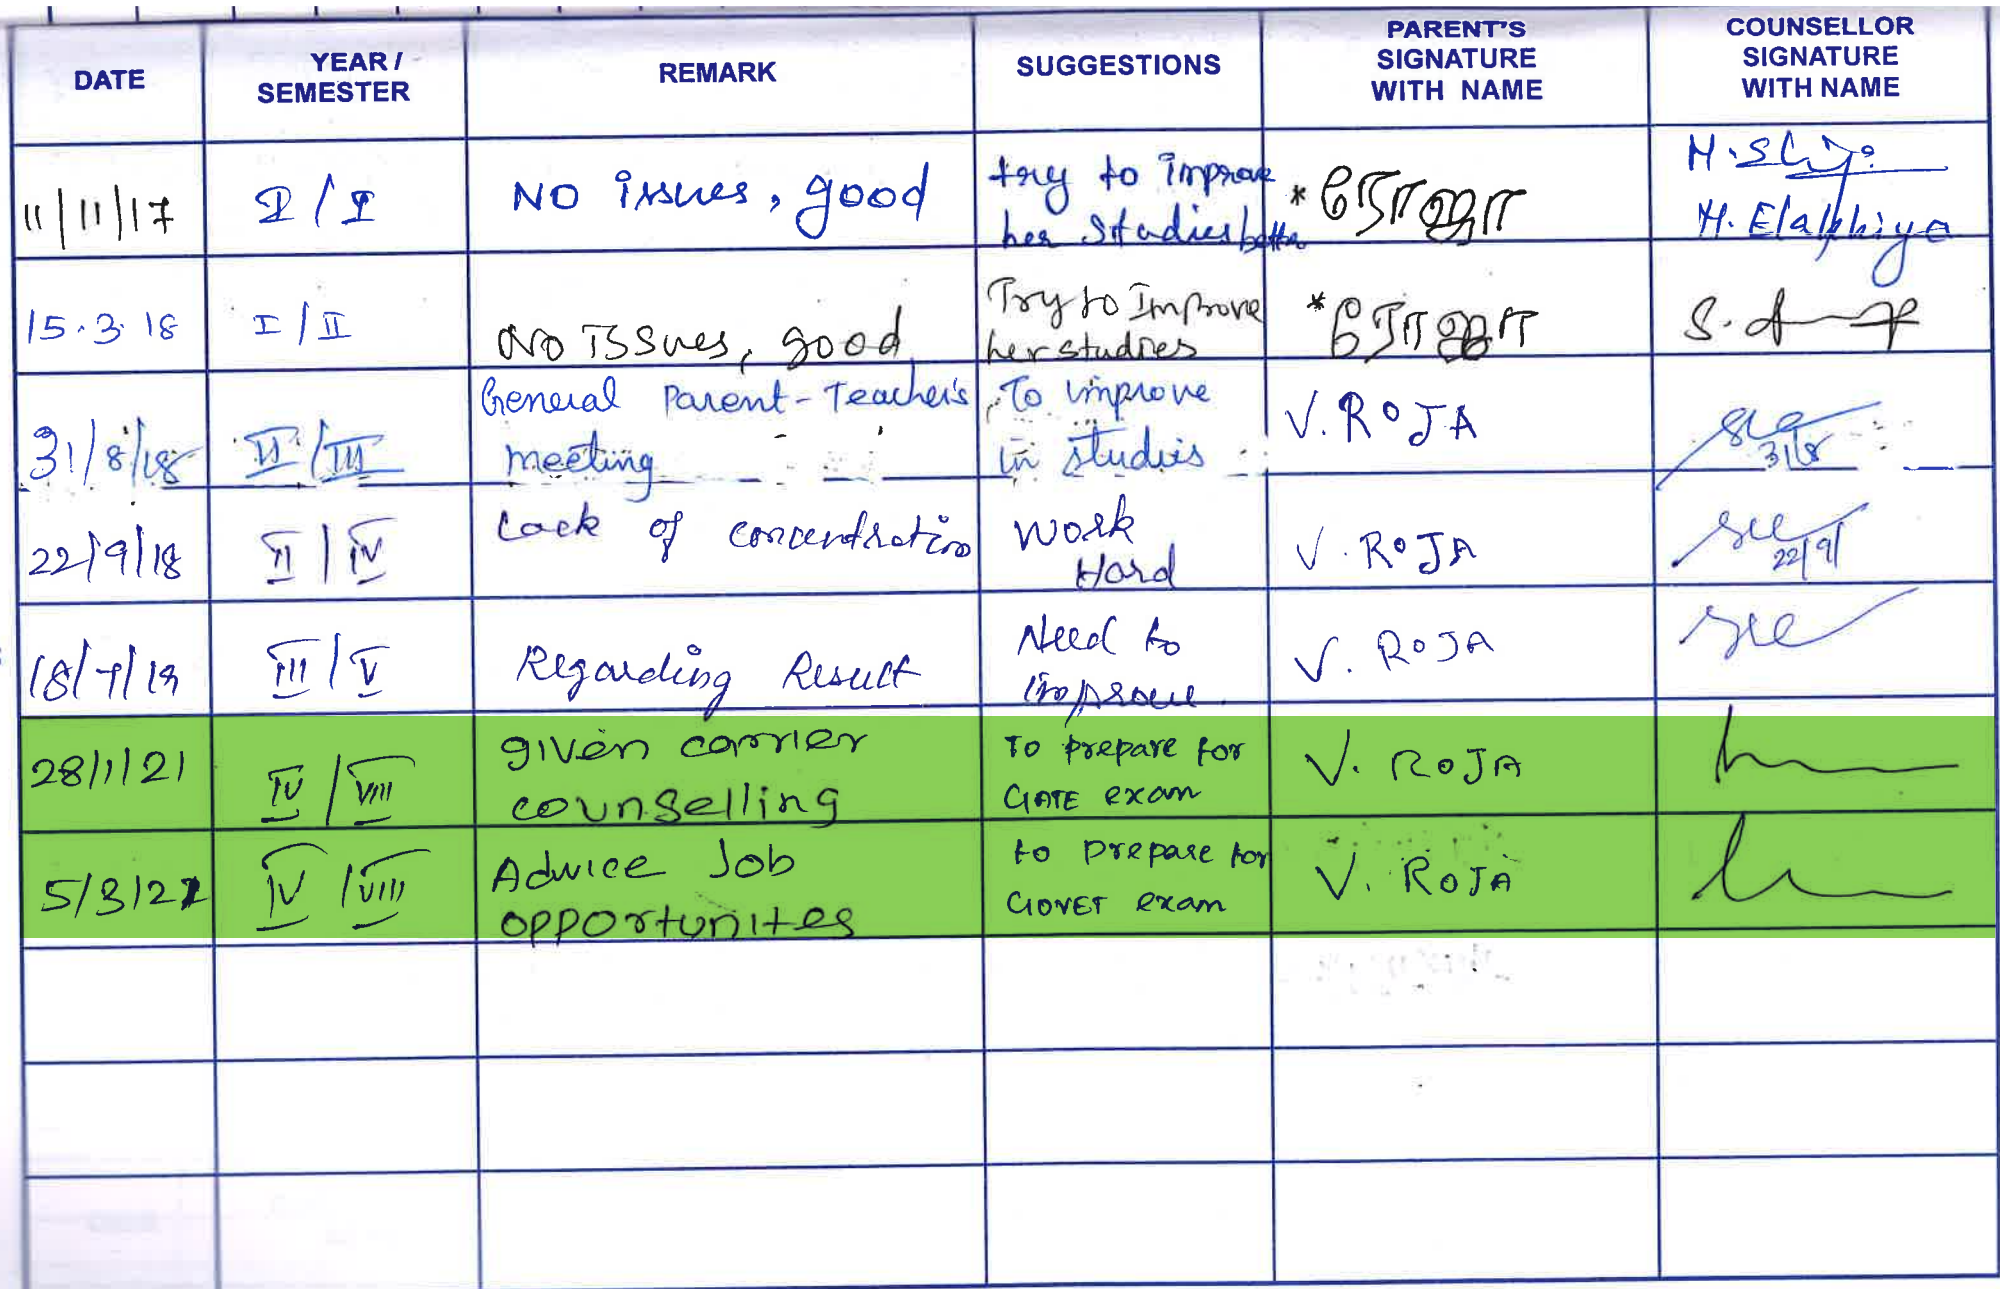 DATE
YEAR /
SEMESTER
REMARK
SUGGESTIONS
PARENT'S
SIGNATURE
WITH NAME
COUNSELLOR
SIGNATURE
WITH NAME
11/11/17
I / I
NO issues, good
try to improve
her studies better
* ரோஜா
H. Elakhiya
15.3.18
I / II
NO Issues, good
Try to Improve
her studies
* ரோஜா
31/8/18
II / III
General Parent-Teacher's
meeting
To improve
in studies
V. ROJA
31/8
22/9/18
II / IV
Lack of concentration
Work
Hard
V. ROJA
22/9/
18/7/19
III / V
Regarding Result
Need to
improve
V. ROJA
28/1/21
IV / VIII
given carrier
counselling
To prepare for
GATE exam
V. ROJA
5/3/21
IV / VIII
Advice Job
opportunites
to prepare for
GOVET exam
V. ROJA